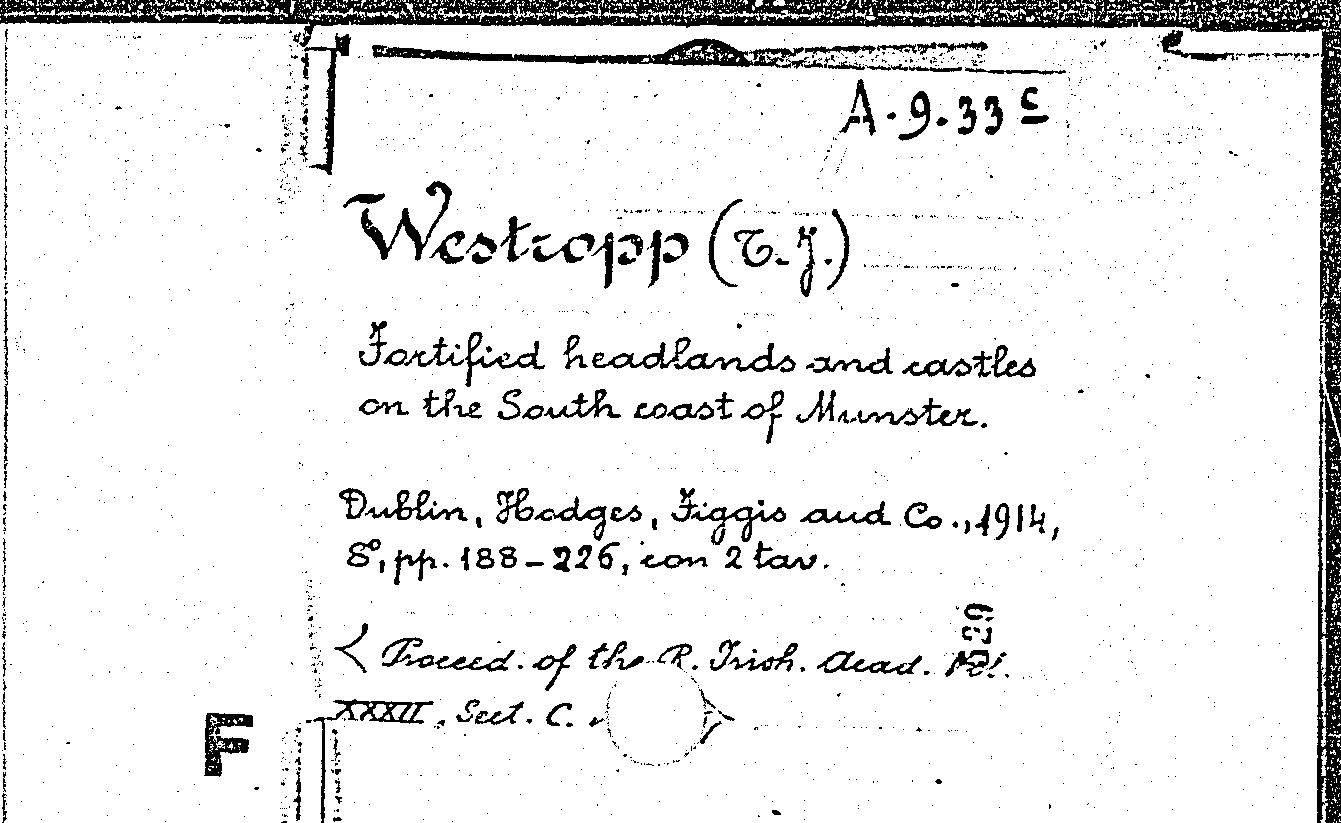 A.9.33 c
Westropp (T. J.)
Fortified headlands and castles
on the South coast of Munster.
Dublin, Hodges, Figgis and Co., 1914,
8°, pp. 188-226, con 2 tav.
529
< Proceed. of the R. Irish. Acad. Vol.
XXXII, Sect. C. >
F